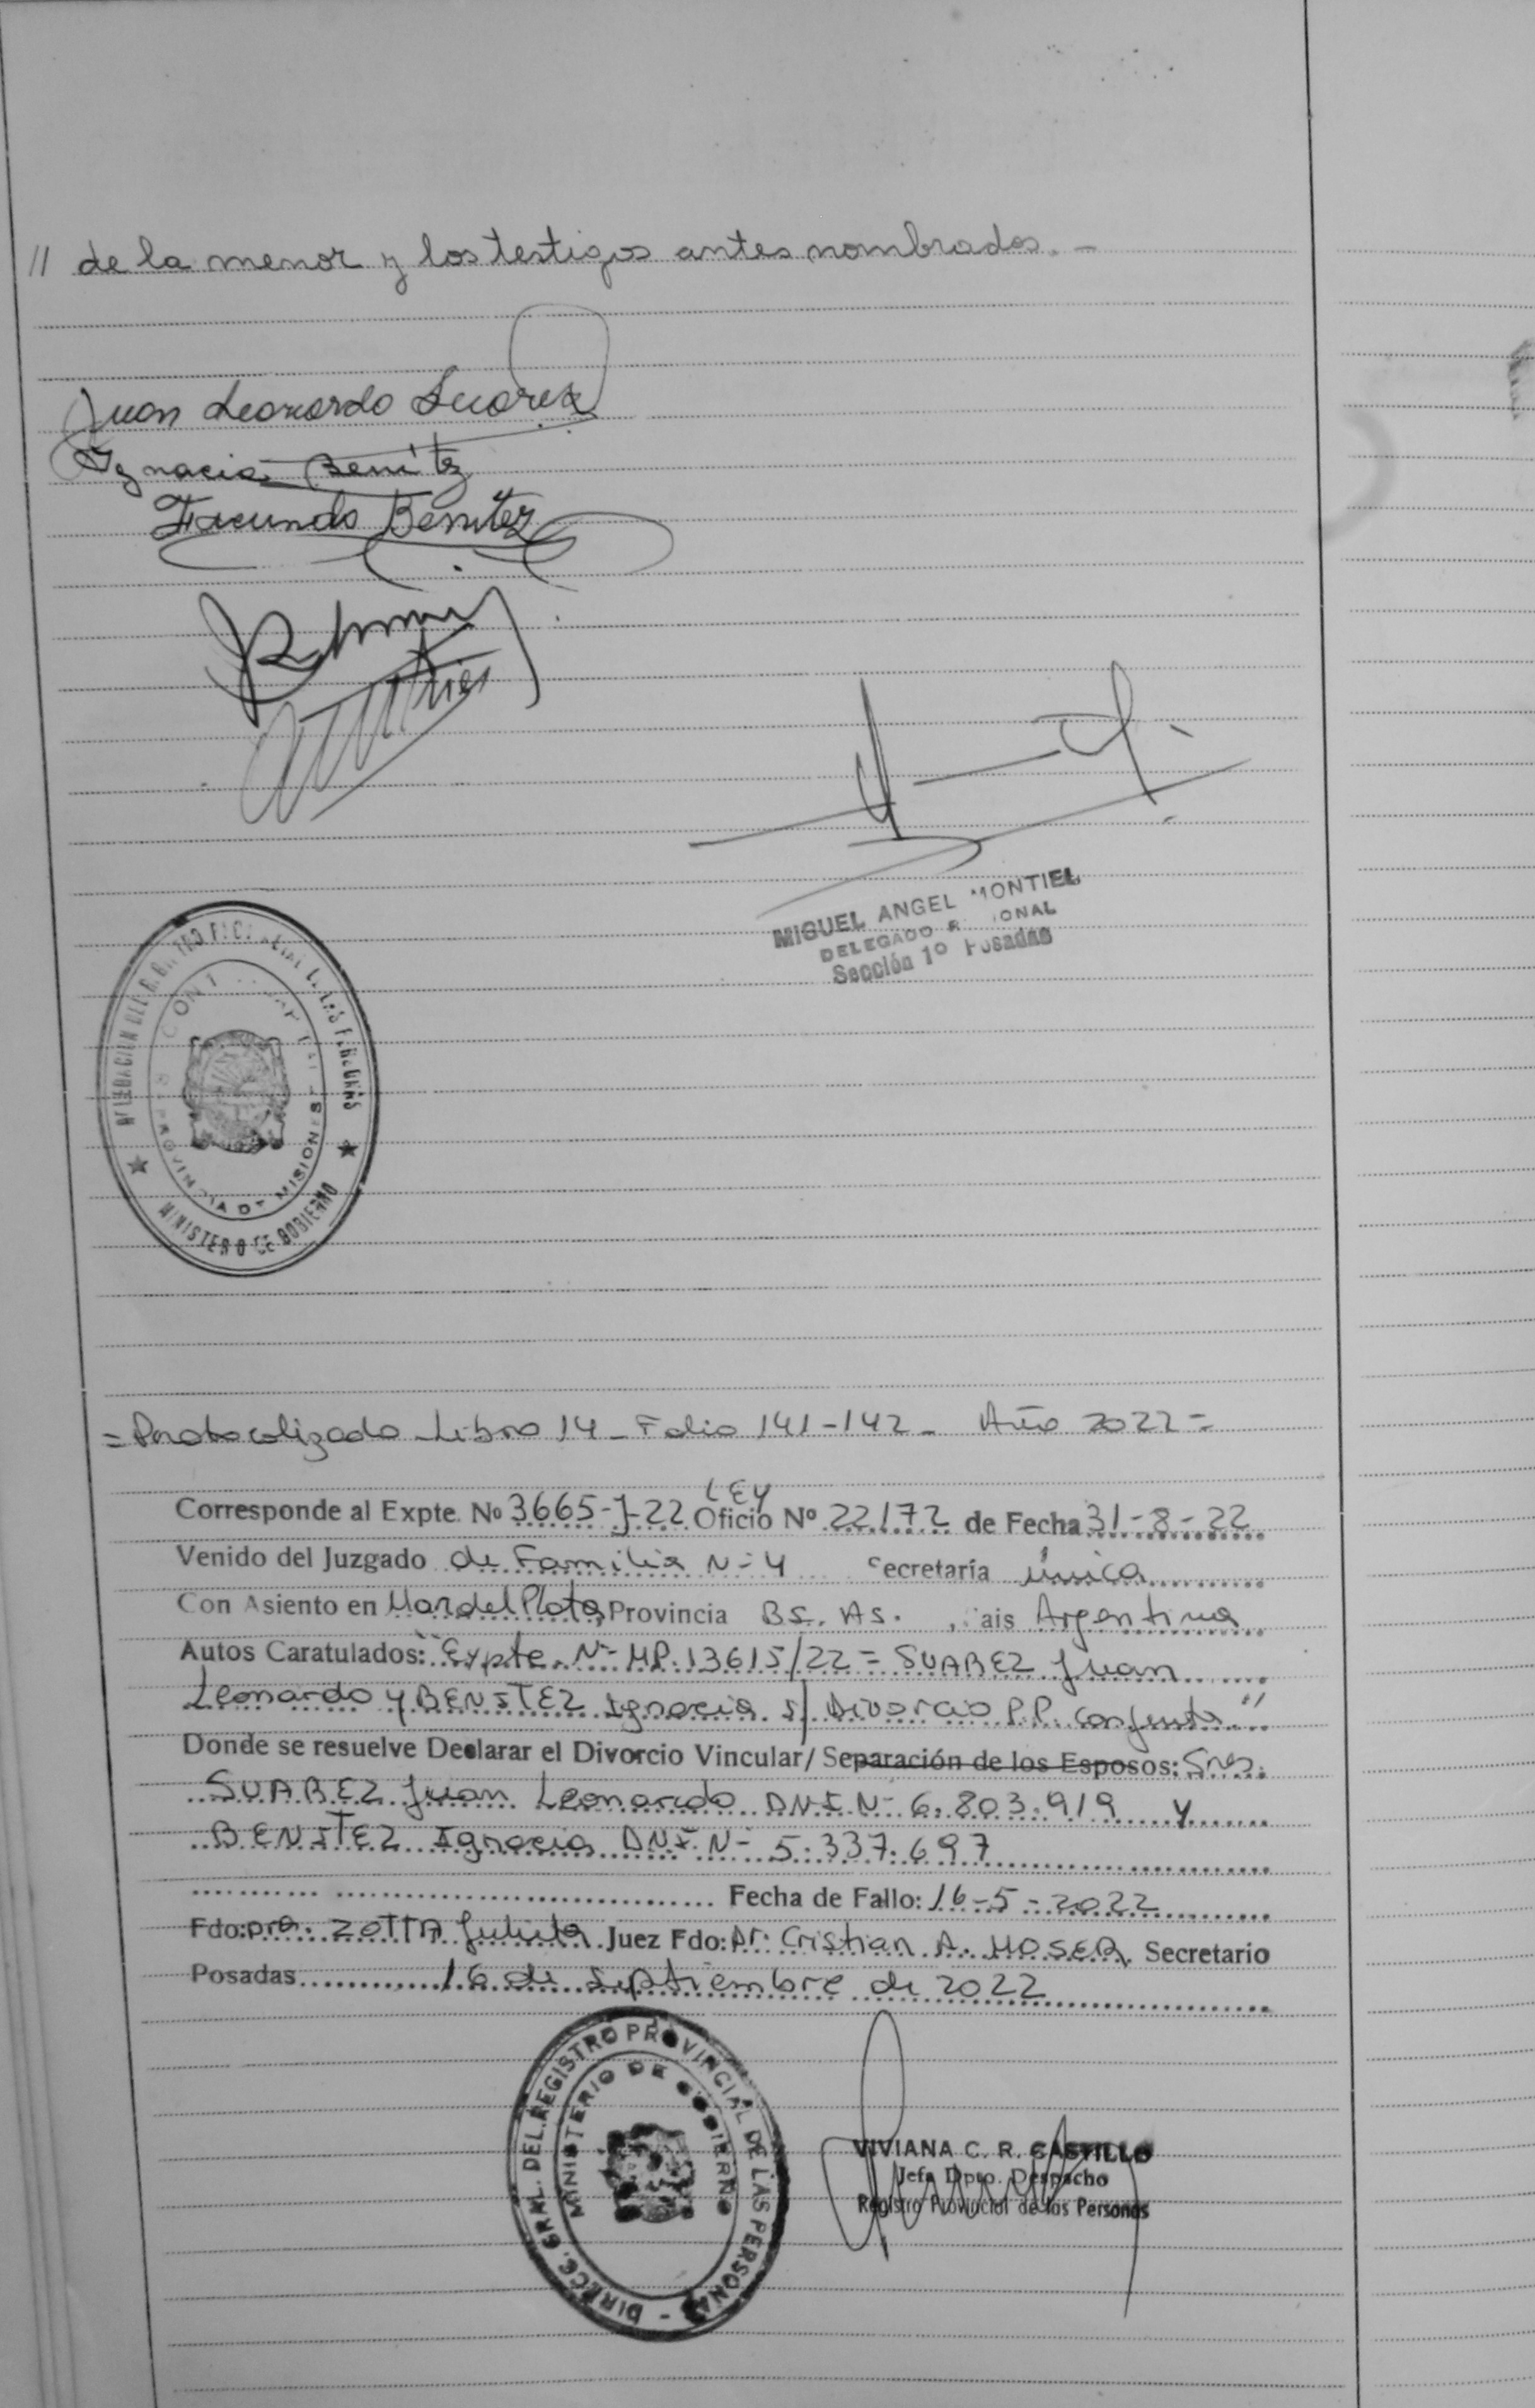 // de la menor y los testigos antes nombrados. -
Juan Leonardo Suarez
Ignacia Benitez
Facundo Benitez
MIGUEL ANGEL MONTIEL
DELEGADO
Sección 1º Posadas
PROVINCIA DE MISIONES
MINISTERO DE GOBIERNO
= Protocolizado - Libro 14 - Folio 141-142 - Año 2022 =
LEY
Corresponde al Expte. Nº 3665-J-22 Oficio Nº 22172 de Fecha 31-8-22
Venido del Juzgado de Familia Nº 4 Secretaría única
Con Asiento en Mar del Plata Provincia BS. AS. , Pais Argentina
Autos Caratulados: "Expte. Nº MP. 13615/22 = SUAREZ Juan
Leonardo y BENITEZ Ignacia s/ Divorcio P.P. conjunta"
Donde se resuelve Declarar el Divorcio Vincular/ Separación de los Esposos: Sres.
SUAREZ Juan Leonardo DNI Nº 6.803.919 y
BENITEZ Ignacia DNI. Nº 5.337.697
Fecha de Fallo: 16-5-2022
Fdo: Dra. ZOTTA Julieta Juez Fdo: Dr. Cristian A. MOSER Secretario
Posadas 16 de Septiembre de 2022
DIRECC. GRAL. DEL REGISTRO PROVINCIAL DE LAS PERSONAS -
MINISTERIO DE GOBIERNO
VIVIANA C. R. CASTILLO
Jefa Dpto. Despacho
Registro Provincial de las Personas